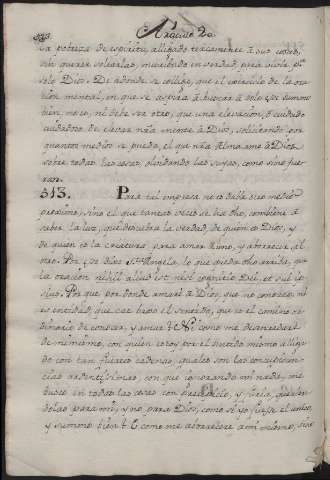 Paracivo 2o.
la pobreza de espiritu, allegado tercamente à sus cosas,
sin querer soltarlas, muriendo en verdad, para vivir pa
solo Dios. De adonde se collige, que el exercicio de la ora
cion mental, en que se aspira à buscar à solo este summo
bien no es, ni debe ser otro, que una elevacion, ô
cuidadosa de elevar nra mente à Dios, solicitando por
quantos medios se puede, el que nra Alma ame à Dios
sobre todas las cosas, olvidando las suyas, como sino fue
ran.
313. Para tal empresa no se halla otro medio
proximo, sino el que tantas veces se ha dho, combiene à
saber la luz, que descubra la verdad, de quien es Dios, y
de quien es la creatura, para amar à uno, y aborrecer al
otro. Por eso dixo Sta Angela, lo que queda dho arriba, que
la oracion nihil aliud est nisi cognitio Dei, et sui ip
sius. Por que por donde amaré à Dios, que no conozco, ni
es entidad, que cae bajo el sentido, que es el camino or
dinario de conocer, y amar? Ni como me desenredaré
de mi mismo, con quien estoy por el mundo mismo allega
do con tan fuertes cadenas, quales son las concupiscen
cias ardentissimas, con que ignorando mi nada, me
busco en todas las cosas con y
dolas para mi, y no para Dios, como si yo fuese el unico,
y summo bien? I como me aborreceré à mi mismo, sino